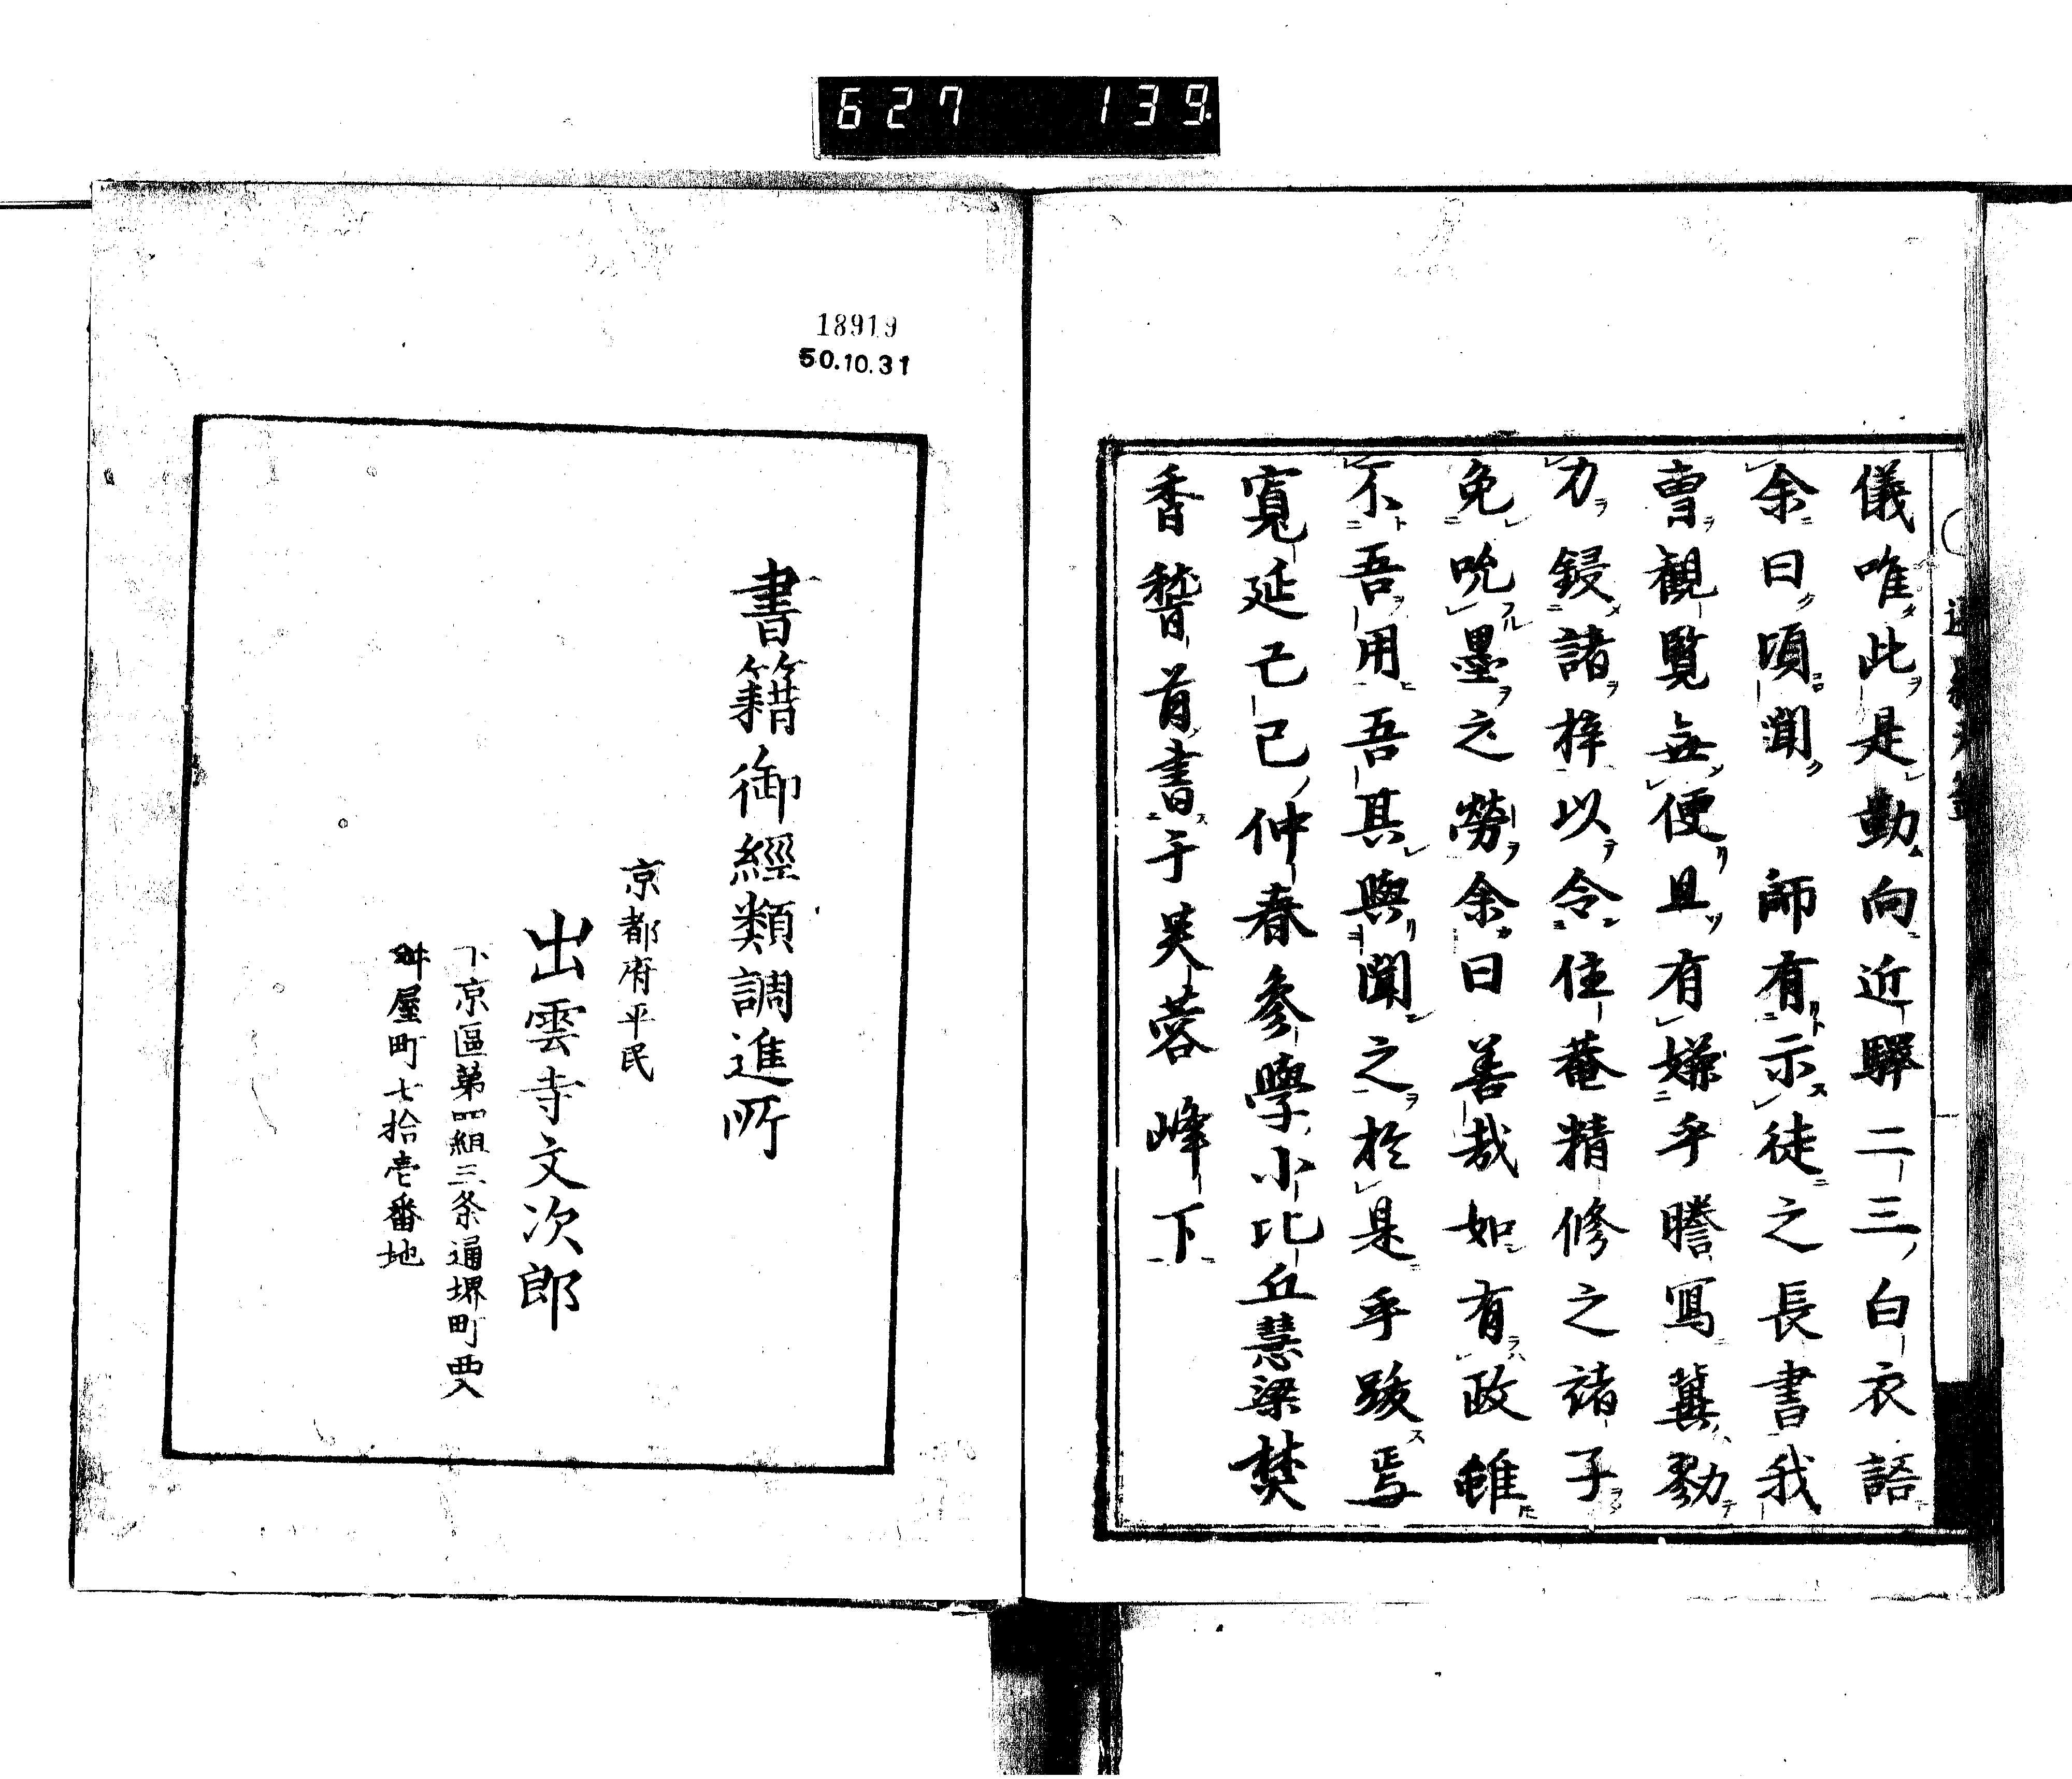 627 139
儀唯此是勤向近驛二三白衣語
余曰頃聞 師有示徒之長書我
曹観覧無便且有嫌乎謄寫冀勠
力鋟諸梓以令住菴精修之諸子
免吮墨之勞余曰善哉如有政雖
不吾用吾其與聞之於是乎跋焉
寛延己巳仲春參學小比丘慧梁焚
香稽首書于芙蓉峰下
18919
50.10.31
書籍御經類調進所
京都府平民
出雲寺文次郎
下京區第四組三条通堺町西入
舛屋町七拾壱番地